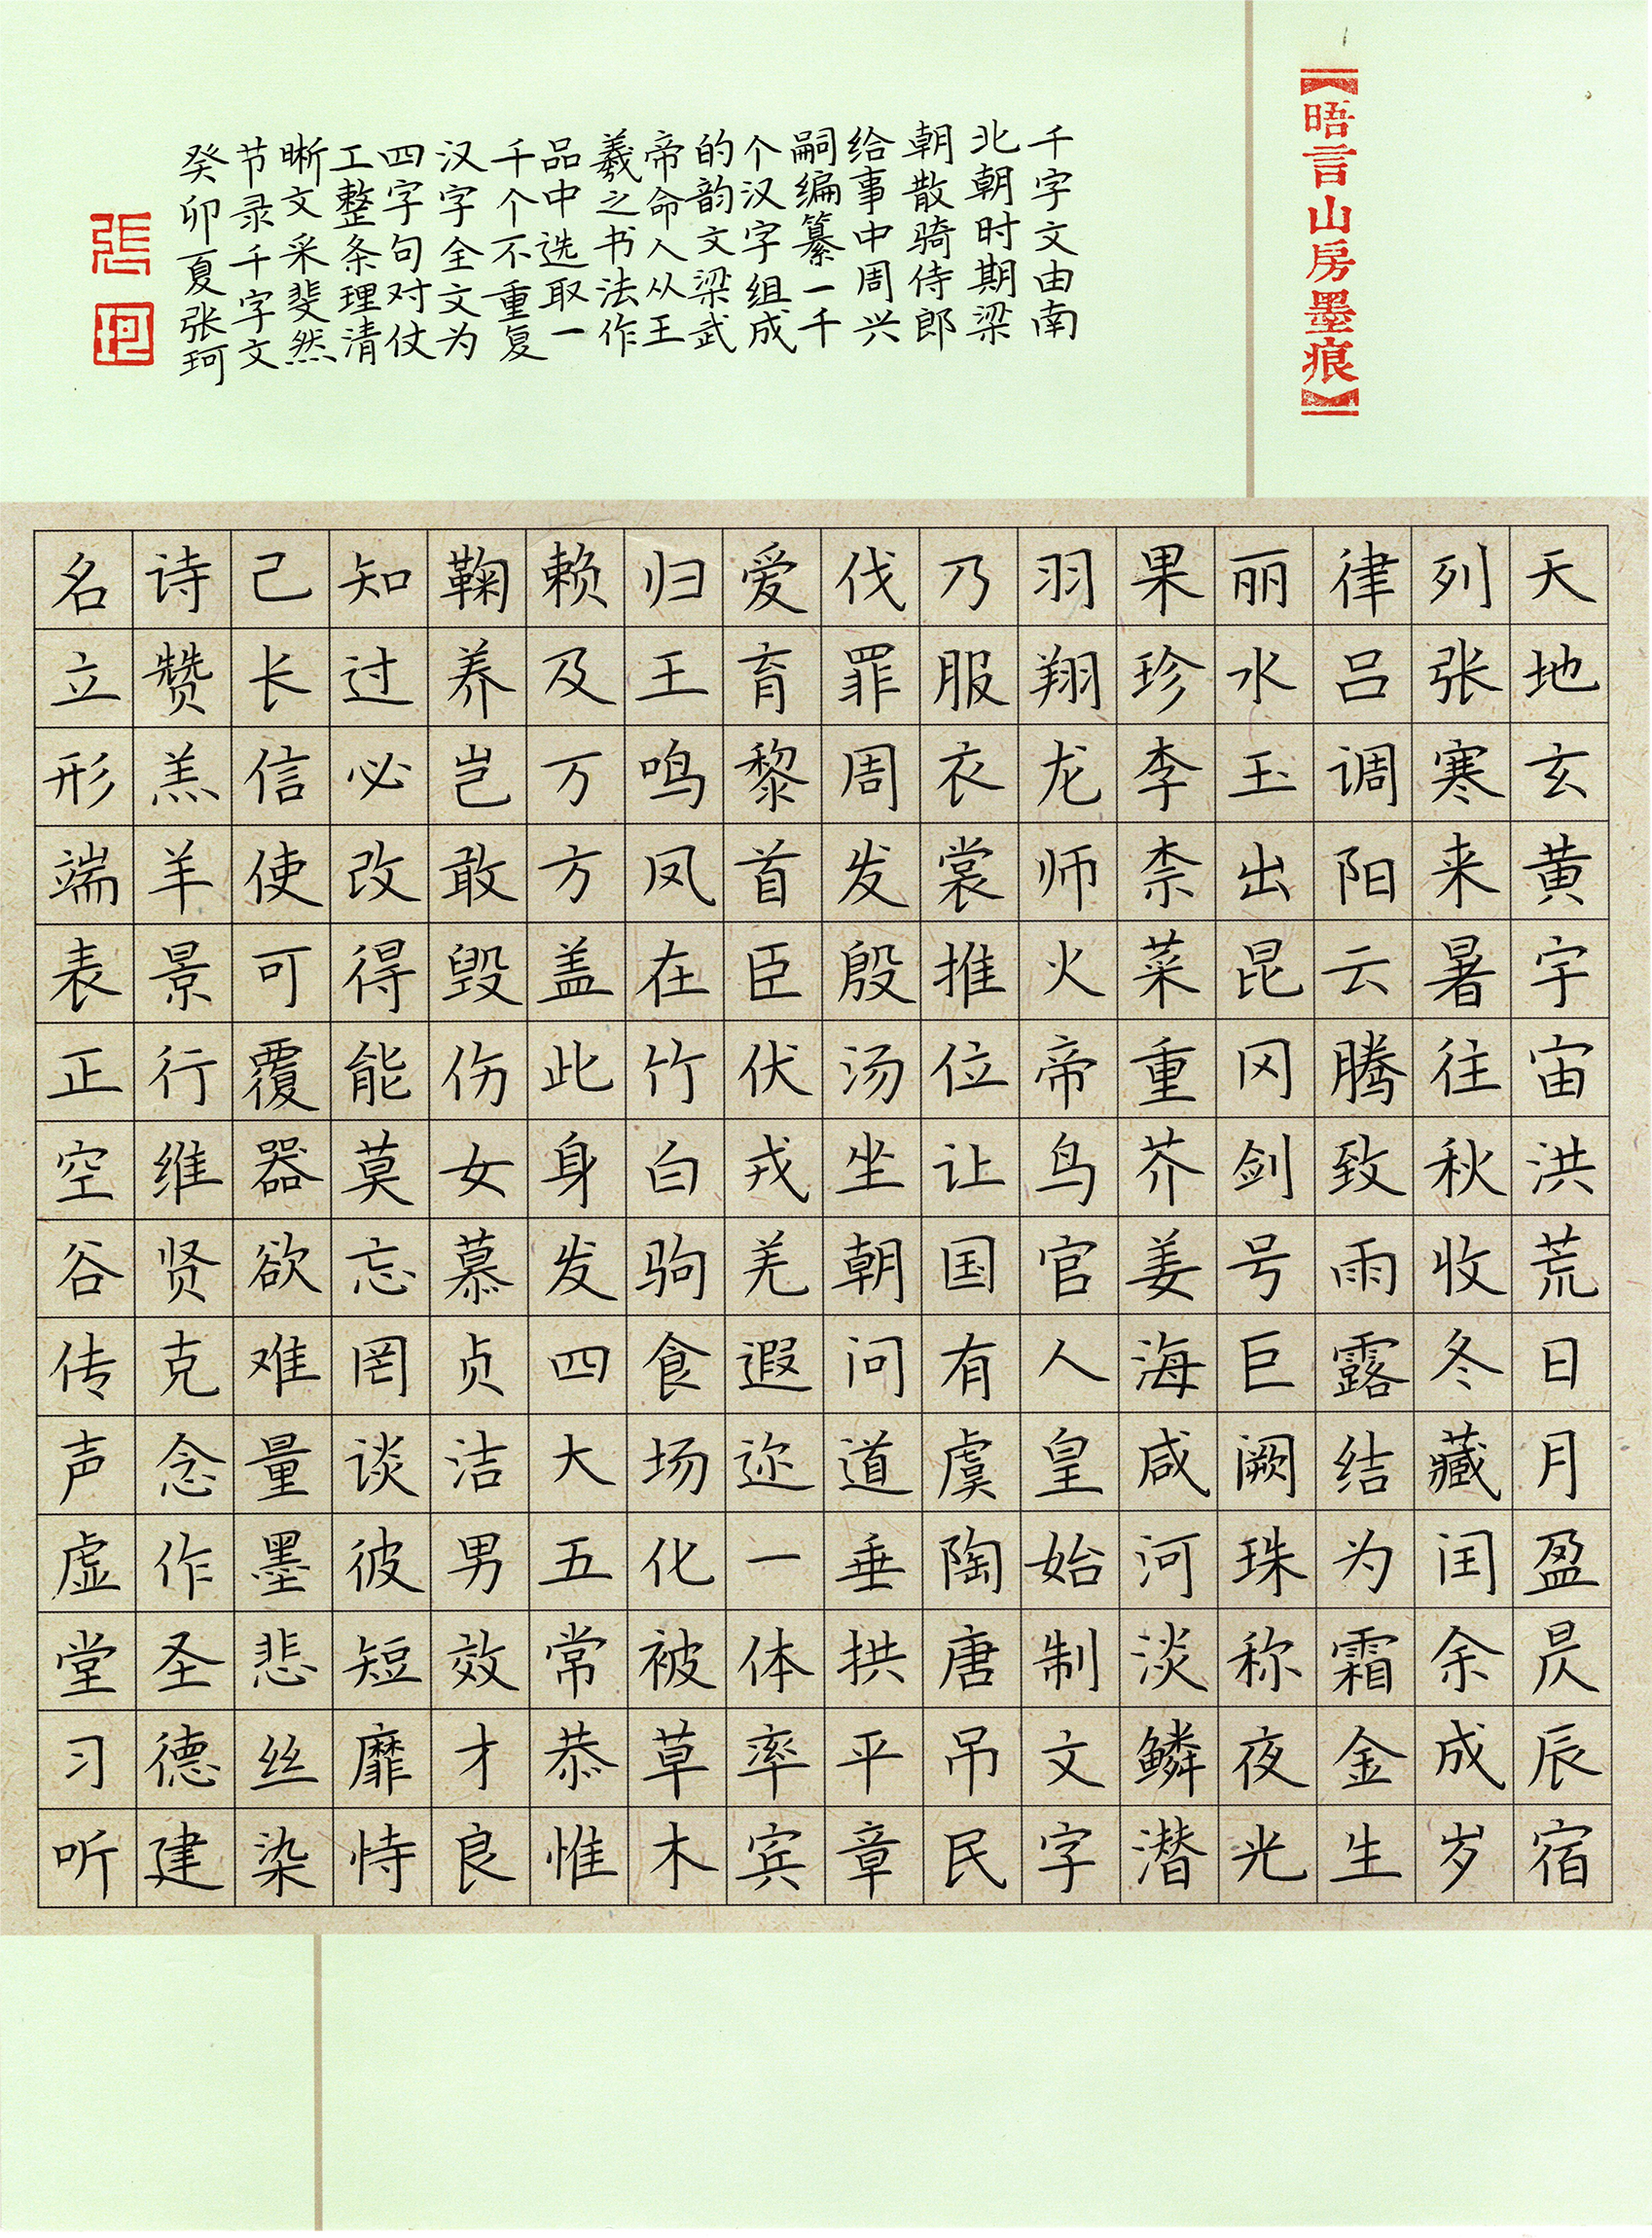 【晤言山房墨痕】
千字文由南
北朝时期梁
朝散骑侍郎
给事中周兴
嗣编纂一千
个汉字组成
的韵文梁武
帝命人从王
羲之书法作
品中选取一
千个不重复
汉字全文为
四字句对仗
工整条理清
晰文采斐然
节录千字文
癸卯夏张珂
張
珂
天地玄黄宇宙洪荒日月盈昃辰宿
列张寒来暑往秋收冬藏闰余成岁
律吕调阳云腾致雨露结为霜金生
丽水玉出昆冈剑号巨阙珠称夜光
果珍李柰菜重芥姜海咸河淡鳞潜
羽翔龙师火帝鸟官人皇始制文字
乃服衣裳推位让国有虞陶唐吊民
伐罪周发殷汤坐朝问道垂拱平章
爱育黎首臣伏戎羌遐迩一体率宾
归王鸣凤在竹白驹食场化被草木
赖及万方盖此身发四大五常恭惟
鞠养岂敢毁伤女慕贞洁男效才良
知过必改得能莫忘罔谈彼短靡恃
己长信使可覆器欲难量墨悲丝染
诗赞羔羊景行维贤克念作圣德建
名立形端表正空谷传声虚堂习听